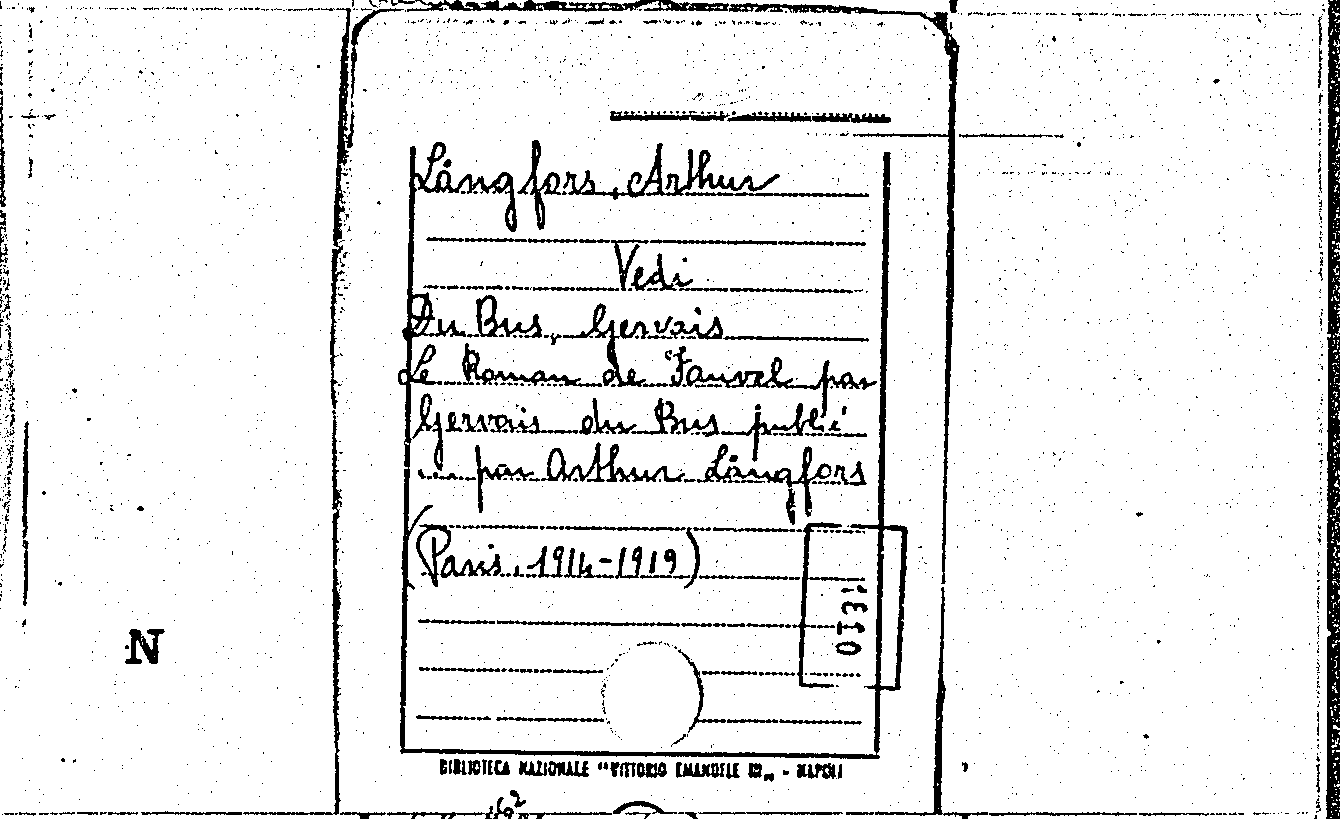 Långfors, Arthur
Vedi
Du Bus, Gervais
Le Roman de Fauvel par
Gervais du Bus publié
... par Arthur Långfors
(Paris, 1914-1919)
N
BIBLIOTECA NAZIONALE "VITTORIO EMANUELE III" - NAPOLI